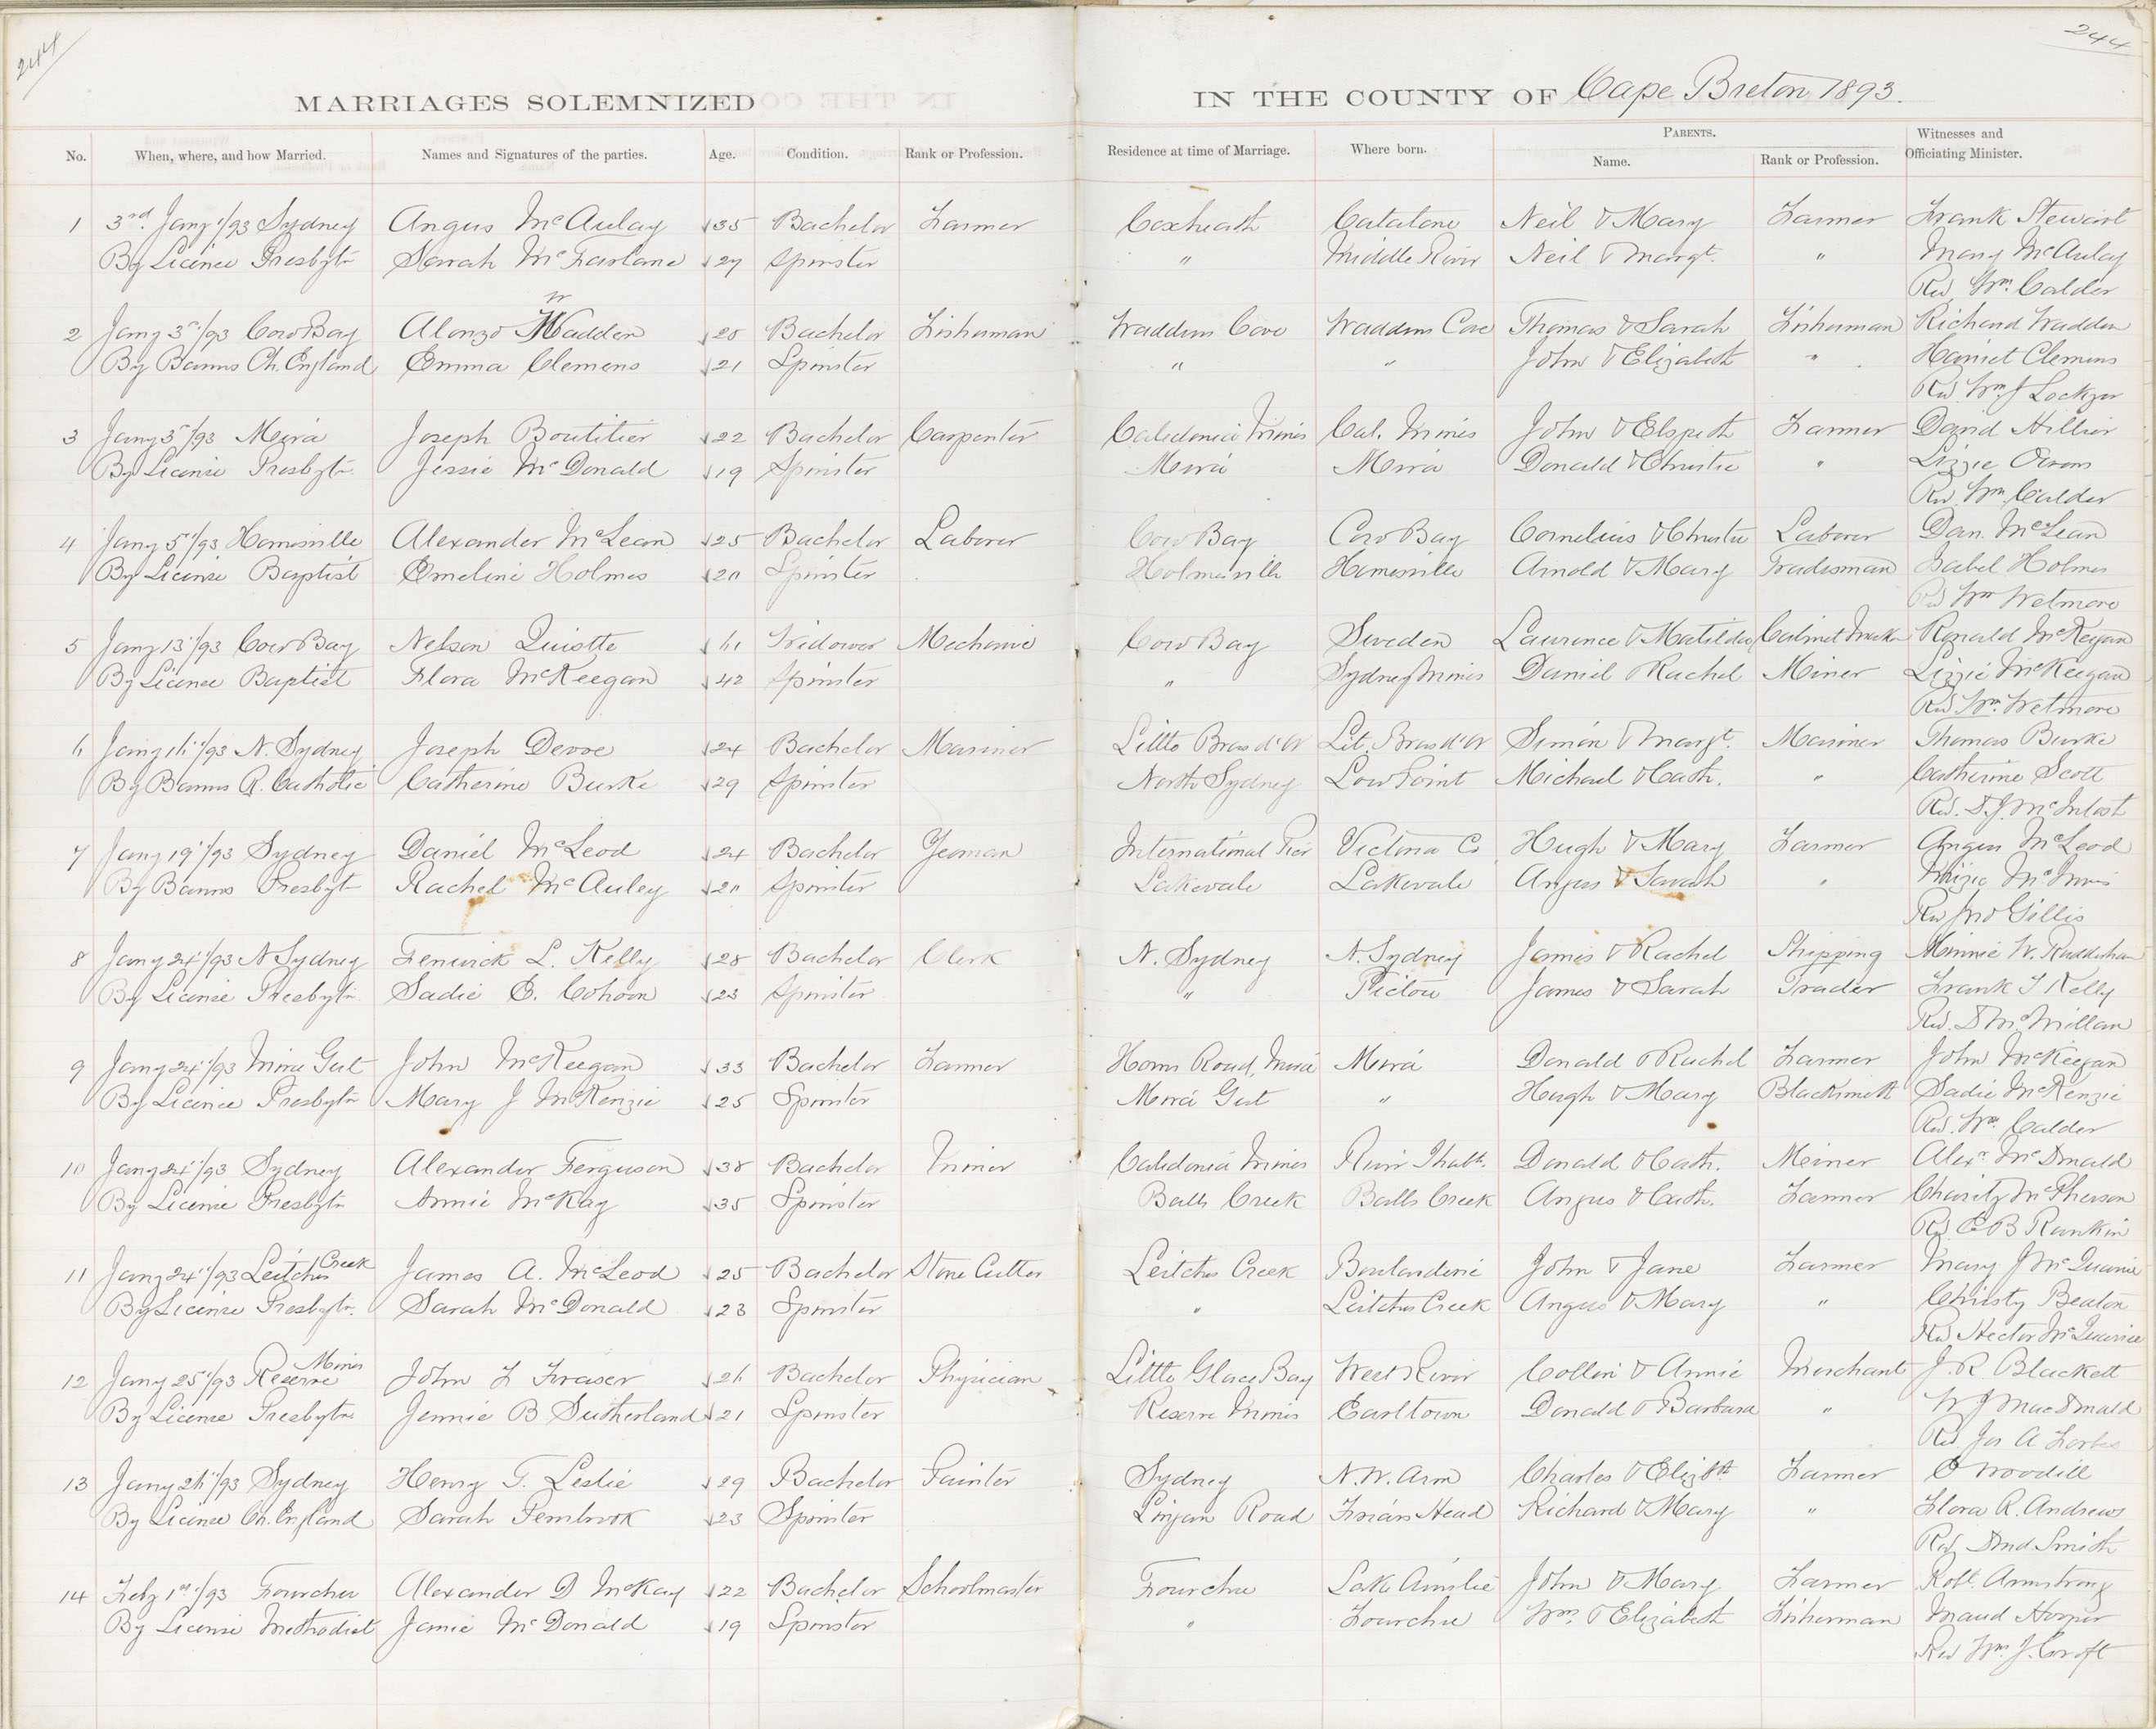 244
244
MARRIAGES SOLEMNIZED IN THE COUNTY OF Cape Breton 1893.
No. When, where, and how Married. Names and Signatures of the parties. Age. Condition. Rank or Profession. Residence at time of Marriage. Where born. PARENTS. Name. Rank or Profession. Witnesses and Officiating Minister.
1 3rd. Jany 1/93 Sydney Angus McAulay 35 Bachelor Farmer Coxheath Catalone Neil & Mary Farmer Frank Stewart
By Licence Presbytn Sarah McFarlane 27 Spinster " Middle River Neil & Margt. " Mary McAulay
Rev. Wm. Calder
W
2 Jany 3rd/93 Cow Bay Alonzo Wadden 28 Bachelor Fisherman Waddens Cove Waddens Cove Thomas & Sarah Fisherman Richard Wadden
By Banns Ch. England Emma Clemens 21 Spinster " " John & Elizabeth " Harriet Clemens
Rev. Wm J Lockyer
3 Jany 5"/93 Mira Joseph Boutilier 22 Bachelor Carpenter Caledonia Mines Cal. Mines John & Elspeth Farmer David Hillier
By License Presbytn. Jessie McDonald 19 Spinster Mira Mira Donald & Christie " Lizzie
Rev Wm. Calder
4 Jany 5"/93 Homesville Alexander McLean 25 Bachelor Laborer Cow Bay Cow Bay Cornelius & Christie Laborer Dan. McLean
By License Baptist Emeline Holmes 20 Spinster Holmesville Homesville Arnold & Mary Tradesman Isabel Holmes
Rev Wm Wetmore
5 Jany 13"/93 Cow Bay Nelson Quistte 61 Widower Mechanic Cow Bay Sweden Laurence & Matilda Cabinet Maker Ronald McKegan
By Licence Baptist Flora McKeegan 42 Spinster " Sydney Mines Daniel & Rachel Miner Lizzie McKeegan
Rev Wm. Wetmore
6 Jany 16"/93 N. Sydney Joseph Devoe 24 Bachelor Mariner Little Bras d'Or Lit. Bras d'Or Simon & Margt. Mariner Thomas Burke
By Banns R. Catholic Catherine Burke 29 Spinster North Sydney Low Point Michael & Cath. " Catherine Scott
Rev. D.J. McIntosh
7 Jany 19"/93 Sydney Daniel McLeod 24 Bachelor Yeoman International Pier Victoria Co Hugh & Mary Farmer Angus McLeod
By Banns Presbyt Rachel McAuley 20 Spinster Lakevale Lakevale Angus & Sarah " McInnis
Rev Jno Gillis
8 Jany 24"/93 N Sydney Fenwick L. Kelly 28 Bachelor Clerk N. Sydney N. Sydney James & Rachel Shipping Minnie W.
By License Presbytn. Sadie E. Cohoon 23 Spinster " Pictou James & Sarah Trader Frank J Kelly
Rev. D McMillan
9 Jany 24"/93 Mira Gut John McKeegan 33 Bachelor Farmer Horns Road, Mira Mira Donald & Rachel Farmer John McKeegan
By Licence Presbytn Mary J McKenzie 25 Spinster Mira Gut " Hugh & Mary Blacksmith Sadie McKenzie
Rev. Wm. Calder
10 Jany 24"/93 Sydney Alexander Ferguson 38 Bachelor Miner Caledonia Mines River Donald & Cath. Miner Alexr. McDonald
By License Presbytn Annie McKay 35 Spinster Balls Creek Balls Creek Angus & Cath. Farmer Charity McPherson
Rev. E B Rankin
11 Jany 24"/93 Leitches Creek James A. McLeod 25 Bachelor Stone Cutter Leitches Creek Boulardrie John & Jane Farmer Mary J McQuarrie
By License Presbytn. Sarah McDonald 23 Spinster " Leitches Creek Angus & Mary " Christy Beaton
Rev Hector McQuarrie
12 Jany 25"/93 Reserve Mines John F Fraser 26 Bachelor Physician Little Glace Bay West River Collin & Annie Merchant J. R. Blackett
By License Presbytn Jennie B Sutherland 21 Spinster Reserve Mines Earltown Donald & Barbara " W J MacDonald
Rev. Jas A Forbes
13 Jany 26"/93 Sydney Henry T. Leslie 29 Bachelor Painter Sydney N.W. Arm Charles & Elizbth Farmer Woodill
By Licence Ch. England Sarah Pembrook 23 Spinster Lingan Road Friars Head Richard & Mary " Flora R. Andrews
Rev. Smith
14 Feby 1st/93 Fourchu Alexander D McKay 22 Bachelor Schoolmaster Fourchu Lake Ainslie John & Mary Farmer Robt. Armstrong
By License Methodist Jamie McDonald 19 Spinster " Fourchu Wm. & Elizabeth Fisherman Maud Hooper
Rev Wm. J. Croft